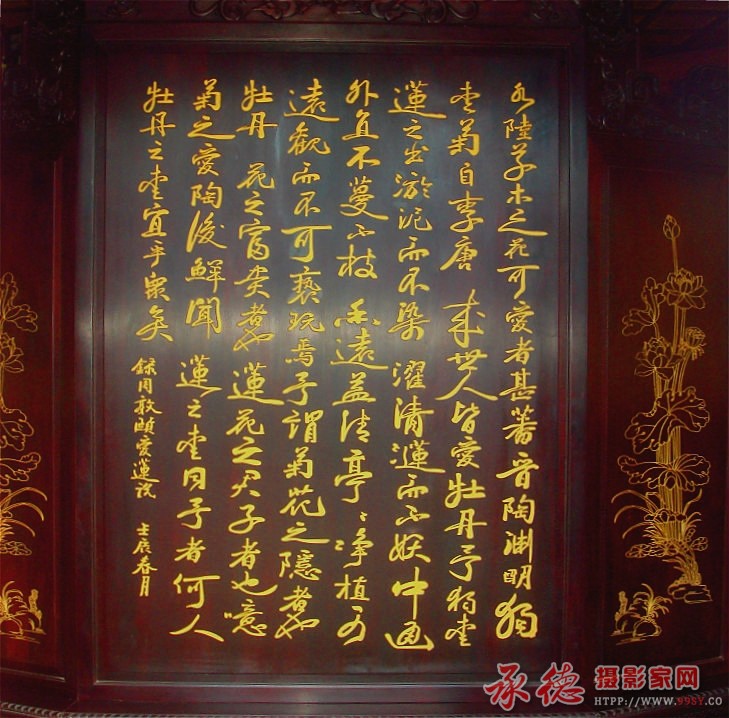 水陸草木之花可愛者甚蕃晉陶渊明独
爱菊自李唐 来世人皆愛牡丹予独爱
蓮之出淤泥而不染濯清漣而不妖中通
外直不蔓不枝 香遠益清亭々净植可
遠觀而不可褻玩焉予謂菊花之隱者也
牡丹 花之富贵者也蓮花之君子者也噫
菊之愛陶後鮮聞 蓮之爱同予者何人
牡丹之爱宜乎眾矣
録周敦頤愛蓮説 壬辰春月
承德摄影家网
HTPP://WWW.99SY.CO